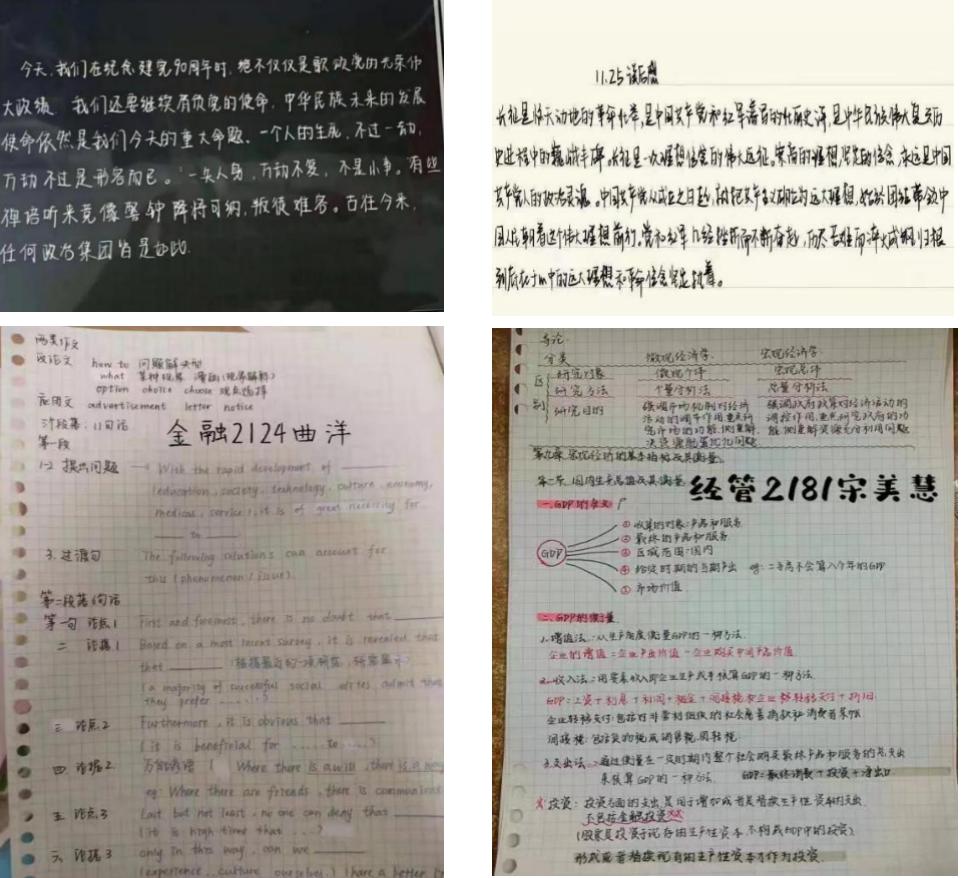 今天,我们在纪念建党90周年时,绝不仅仅是歌颂党的光荣伟
大政绩,我们还要继续肩负党的使命,中华民族未来的发展
使命依然是我们今天的重大命题。一个人的生死,不过一动,
万动不过是形容而已。一失人身,万动不复,不是小事。有些
禅语听来竟像警钟 降将可纳,叛徒难容。古往今来,
任何政治集团皆是如此.
11.25 读后感
长征是惊天动地的革命壮举,是中国共产党和红军谱写的壮丽史诗,是中华民族伟大复兴历
史进程中的巍峨丰碑。长征是一次理想信念的伟大远征。崇高的理想,坚定的信念,永远是中国
共产党人的政治灵魂。中国共产党从成立之日起,就把共产主义确立为远大理想,始终团结带领中
国人民朝着这个伟大理想前行。党和红军几经挫折而不断奋起,历尽苦难而淬火成钢,归根
到底在于心中的远大理想和革命信念坚定执着。
两类作文
议论文 how to 问题解决型
what 某种现象 漫画(现象解释)
option choice choose 观点选择
应用文 advertisement letter notice
三段落:11句话
金融2124曲洋
第一段
1-2 提出问题 With the rapid development of
(education, society, technology, culture, economy,
medical, service), it is of great necessity for
to
3.过渡句 The following solutions can account for
this (phenomenon / issue).
第二段落6句话
第一句 论点1 First and foremost, there is no doubt that
二 论据1 Based on a most recent survey, it is revealed that
that (根据最近的一项研究,研究显示)
(a majority of successful social elites admit that
they prefer ......)
三 论点2 Furthermore, it is obvious that
(it is beneficial for ..... to ....)
四 论据2 万能谚语 ( Where there is a will, there is a way
eg: Where there are friends, there is communions
五 论点3 Last but not least, no one can deny that
(it is high time that ...)
六 论据3 only in this way, can we
(experience, culture, ourselves) (have a better
导论
分类 微观经济学. 宏观经济学
区别 研究对象 微观个体 宏观总体
研究方法 个量分析法 总量分析法
研究目的 强调市场机制对经济 强调政府政策对经济活动的
活动的调节作用,重点研 调控作用,重点研究政府的功
究市场的功能,侧重解 能,侧重解资源充分利用问题
决资源配置优化问题.
第九章.宏观经济的基本指标及其衡量.
第一节.国内生产总值及其衡量 经管2181宗美慧
一.GDP的含义
GDP
① 收算的对象:产品和服务
② 最终的产品和服务
③ 区域范围:国内
④ 给定时期的当期产出 eg:二手房不会算入今年的GDP
⑤ 市场价值.
二.GDP的衡量
1.增值法:从生产角度衡量GDP的一种方法.
企业的增值=企业产出价值-企业购买中间产品价值
2.收入法:用要素收入即企业生产成本核算GDP的一种方法.
GDP=工资+利息+利润+租金+间接税和企业转移支付+折旧.
企业转移支付:包括对非营利组织的社会慈善捐款和消费者呆帐
间接税:包括货物税或销售税、周转税.
3.支出法:通过衡量在一定时期内整个社会购买最终产品和服务的总支出
来核算GDP的一种方法. GDP=最终消费+投资+净出口
投资:投资方面的支出,是用于增加或者是替换生产性资本的支出.
不包括金融投资
(股票是投资于现存的生产性资本,不构成GDP中的投资)
形成或者替换现有的生产性资本才作为投资.